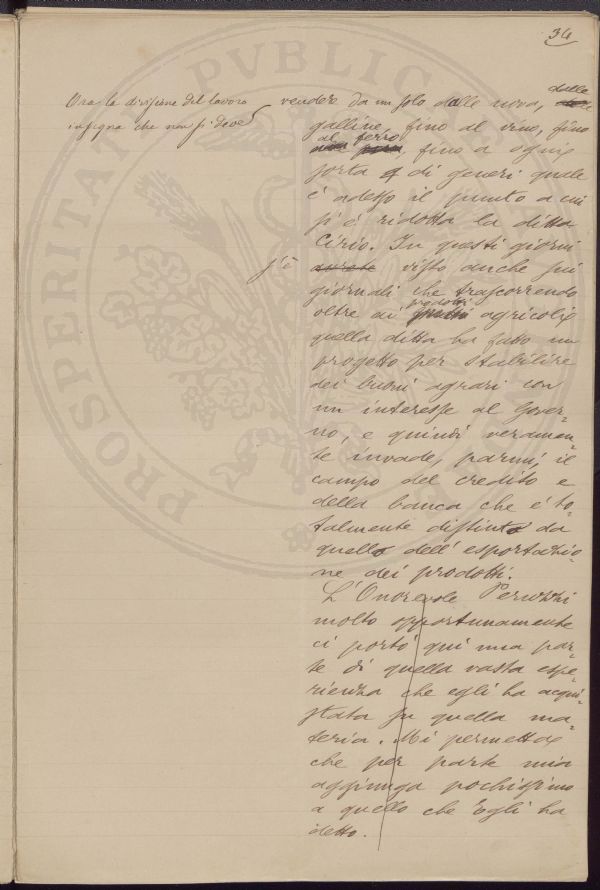 34
Ora la divisione del lavoro
insegna che non si deve
vendere da un solo dalle uova, dalle
galline, fino al vino, fino
al ferro, fino a ogni
sorta di generi quale
è adesso il punto a cui
si è ridotta la ditta
Cirio. In questi giorni
s'è visto anche sui
giornali che trascorrendo
oltre ai prodotti agricoli
quella ditta ha fatto un
progetto per stabilire
dei buoni agrari con
un interesse al Gover-
no, e quindi veramen-
te invade, parmi, il
campo del credito e
della banca che è to-
talmente distinto da
quello dell'esportazio-
ne dei prodotti.
L'Onorevole Peruzzi
molto opportunamente
ci portò qui una par-
te di quella vasta espe-
rienza che egli ha acqui-
stata su quella ma-
teria. Mi permetta
che per parte mia
aggiunga pochissimo
a quello che Egli ha
detto.
PROSPERITA PVBLICA